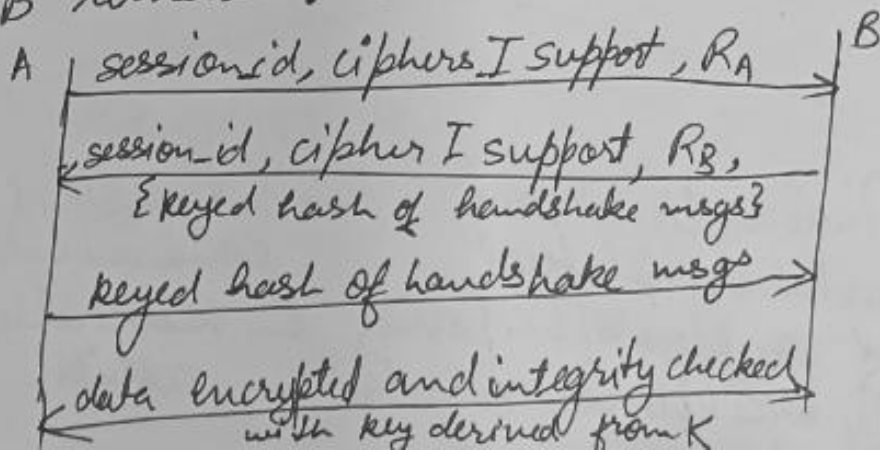 B
A sessionid, ciphers I support, RA B
session_id, cipher I support, RB,
{keyed hash of handshake msgs}
keyed hash of handshake msgs
data encrypted and integrity checked
with key derived from K